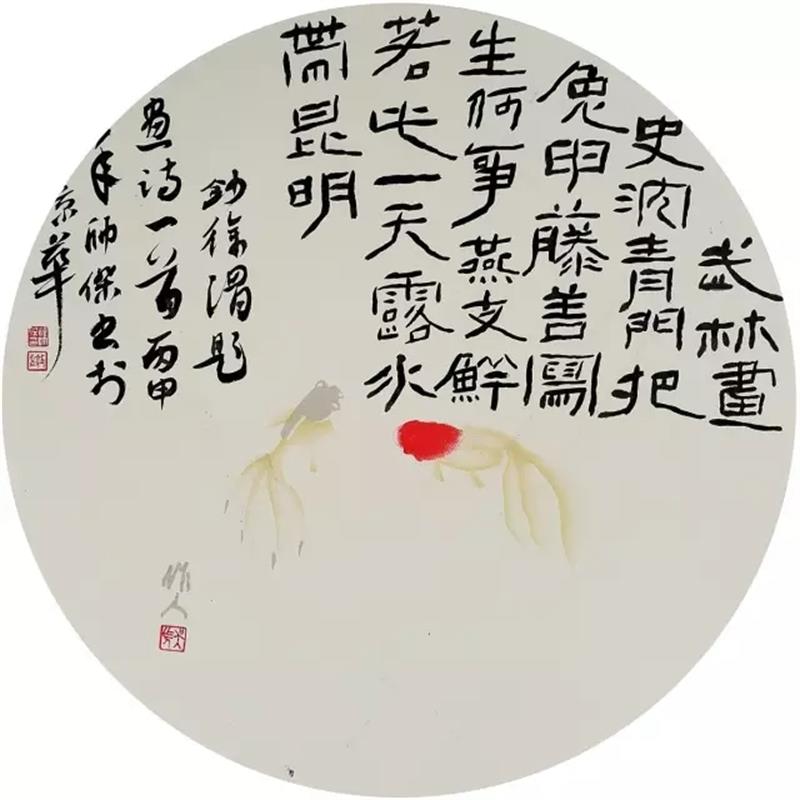 武林畫
史沈青門把
兔申藤善寫
生何事燕支鮮
若此一天露水
帶昆明
鈔徐渭題
畫詩一首丙申
年師傑書於
京華
作人